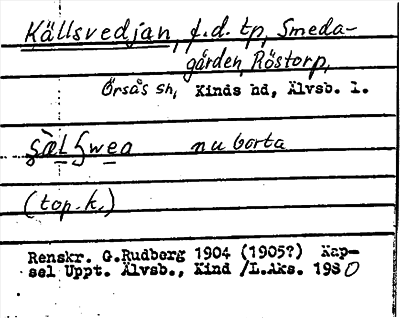 Källsvedjan, f.d. tp, Smeda-
gården, Röstorp,
Örsås sn, Kinds hd, Älvsb. l.
nu borta
(top. k.)
Renskr. G.Rudberg 1904 (1905?) Kap-
sel Uppt. Älvsb., Kind /L.Aks. 1980